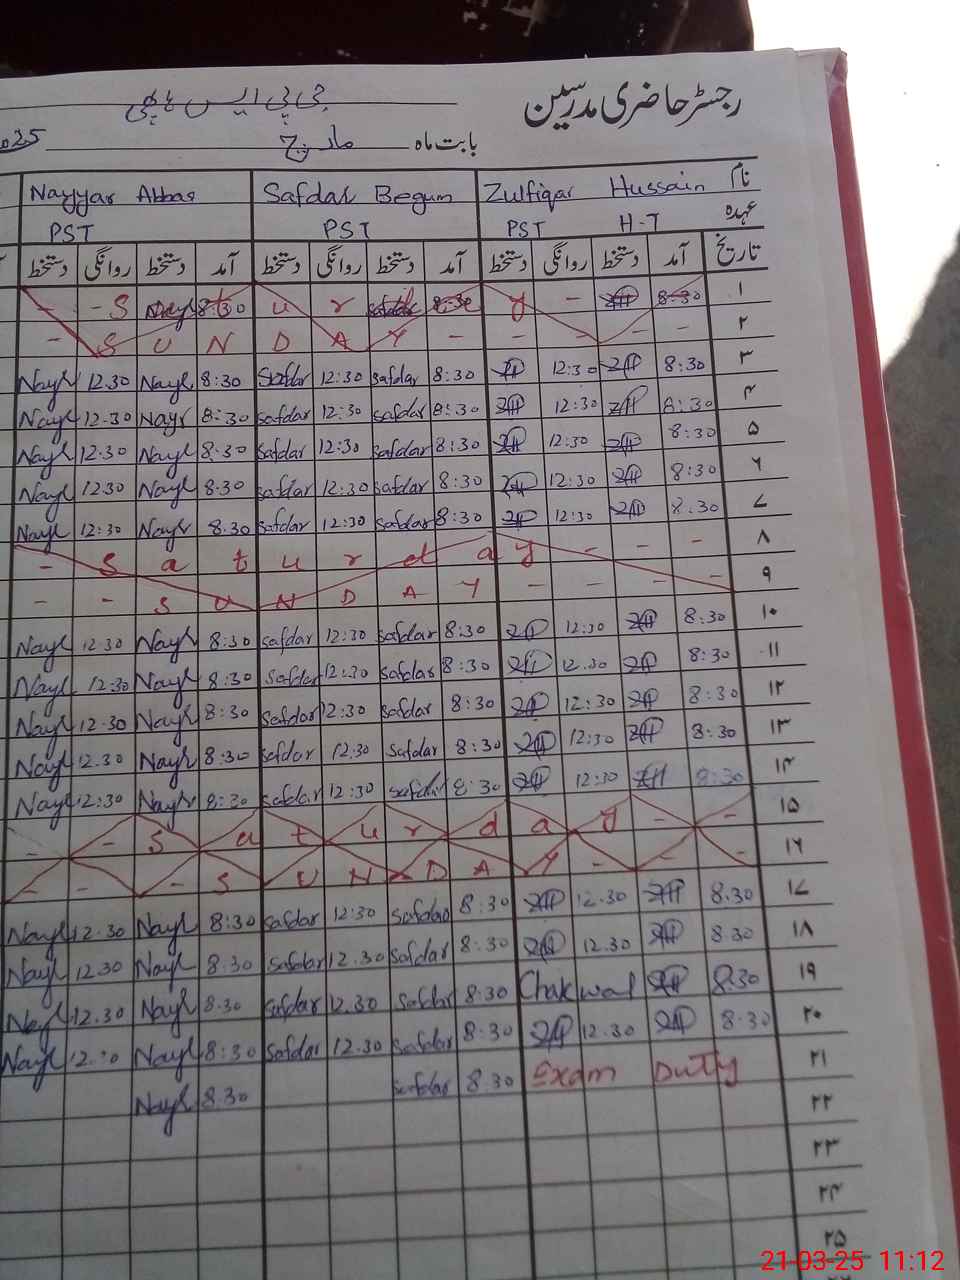 رجسٹر حاضری مدرسین
جی پی ایس ہاچی
بابت ماہ مارچ 2025
نام Zulfiqar Hussain Safdar Begum Nayyar Abbas
عہدہ PST H-T PST PST
تاریخ آمد دستخط روانگی دستخط آمد دستخط روانگی دستخط آمد دستخط روانگی دستخط
- - S Nayr 8:30 u r Safdar 8:30 y - ZH 8:30 ۱
- S U N D A Y - - - - - ۲
Nayr 12.30 Nayr 8:30 Safdar 12:30 Safdar 8:30 ZH 12:30 ZH 8:30 ۳
Nayr 12.30 Nayr 8:30 Safdar 12:30 Safdar 8:30 ZH 12:30 ZH 8:30 ۴
Nayr 12.30 Nayr 8.30 Safdar 12:30 Safdar 8:30 ZH 12:30 ZH 8:30 ۵
Nayr 12.30 Nayr 8.30 Safdar 12:30 Safdar 8:30 ZH 12:30 ZH 8:30 ۶
Nayr 12:30 Nayr 8.30 Safdar 12:30 Safdar 8:30 ZH 12:30 ZH 8.30 ۷
- S a t u r d a y - - - ۸
- - S U N D A Y - - - - ۹
Nayr 12.30 Nayr 8:30 Safdar 12:30 Safdar 8:30 ZH 12:30 ZH 8:30 ۱۰
Nayr 12:30 Nayr 8:30 Safdar 12:30 Safdar 8:30 ZH 12.30 ZH 8:30 ۱۱
Nayr 12.30 Nayr 8:30 Safdar 12:30 Safdar 8:30 ZH 12:30 ZH 8:30 ۱۲
Nayr 12.30 Nayr 8:30 Safdar 12.30 Safdar 8:30 ZH 12:30 ZH 8:30 ۱۳
Nayr 12:30 Nayr 8:30 Safdar 12:30 Safdar 8:30 ZH 12:30 ZH 8:30 ۱۴
- - S a t u r d a y - - ۱۵
- - - S U N D A Y - - - ۱۶
Nayr 12.30 Nayr 8:30 Safdar 12:30 Safdar 8:30 ZH 12.30 ZH 8.30 ۱۷
Nayr 12.30 Nayr 8:30 Safdar 12.30 Safdar 8:30 ZH 12.30 ZH 8.30 ۱۸
Nayr 12.30 Nayr 8.30 Safdar 12.30 Safdar 8:30 Chakwal ZH 8.30 ۱۹
Nayr 12.30 Nayr 8:30 Safdar 12.30 Safdar 8:30 ZH 12.30 ZH 8:30 ۲۰
Nayr 8.30 Safdar 8.30 Exam Duty ۲۱
۲۲
۲۳
۲۴
۲۵
21-03-25 11:12